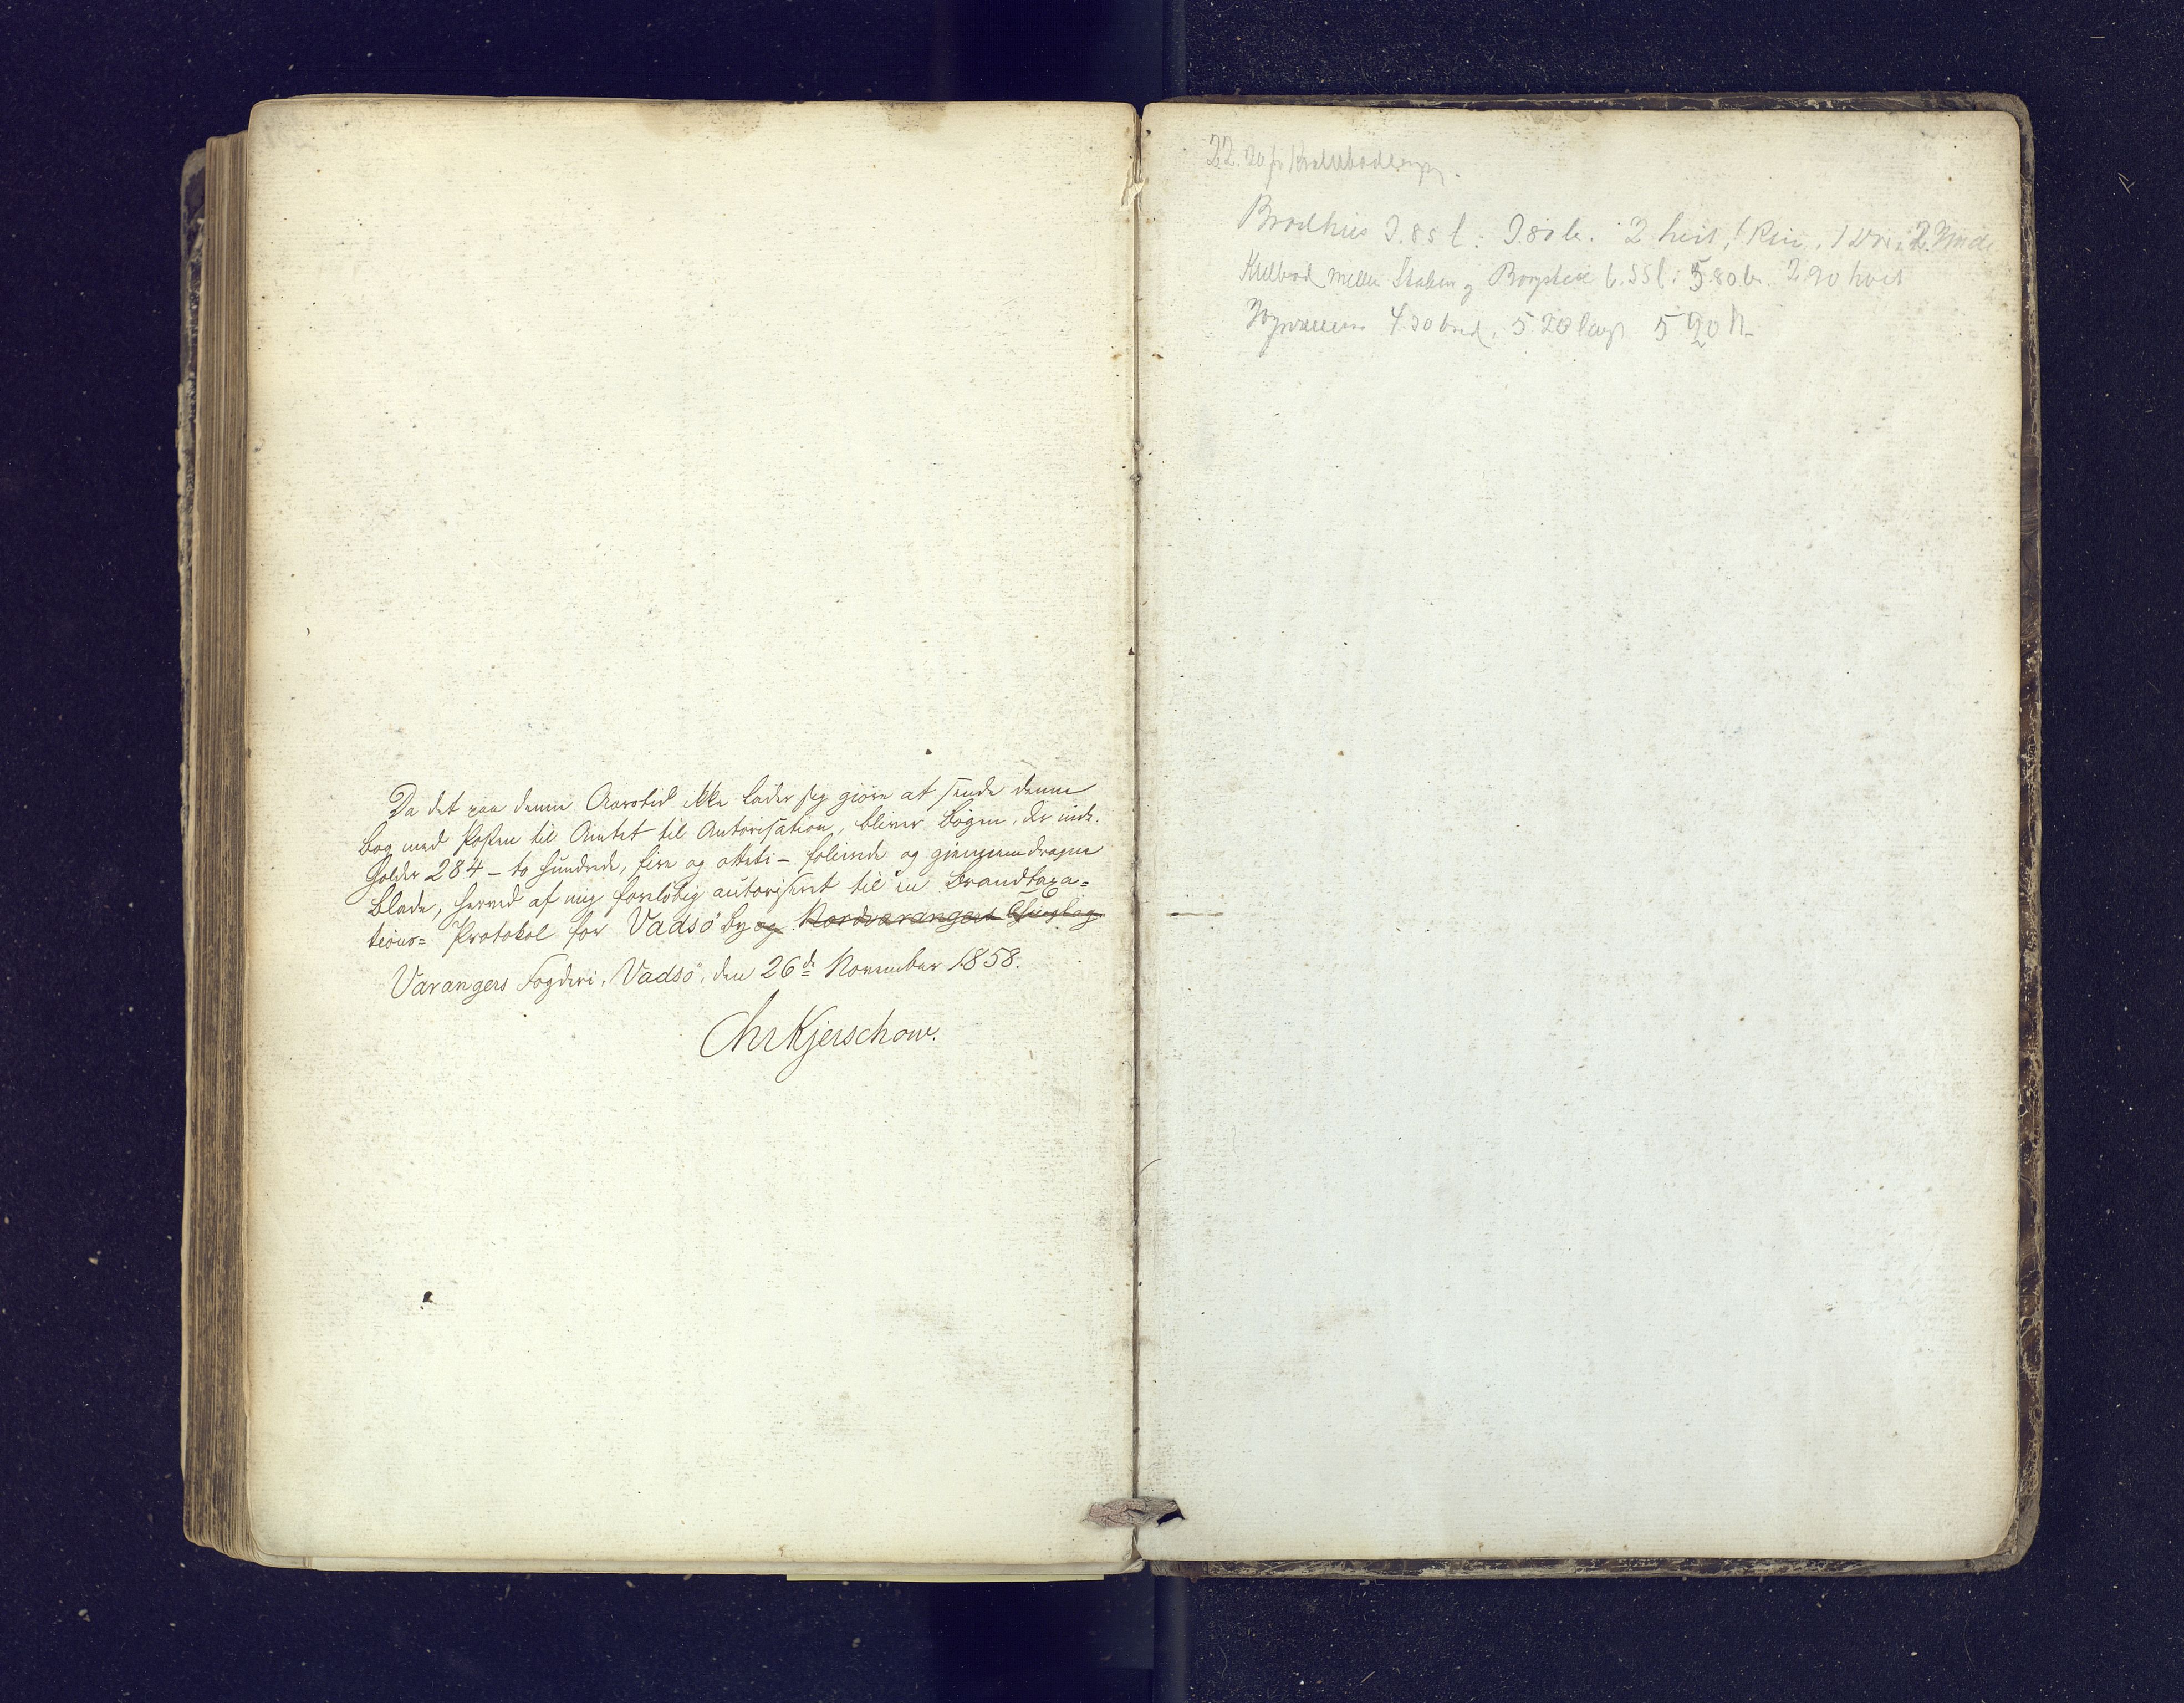 Da det paa denne Aarstid ikke lader sig giøre at sende denne
Bog med Posten til Amtet til Autorisation, bliver Bogen, der inde-
holder 284 – to hundrede, fire og otteti – folierede og gjennemdragne
Blade, herved af mig foreløbig autoriseret til en Brandtaxa=
tions= Protokol for Vadsö By og Nordvarangers Thinglag
Varangers Fogderi, Vadsö, den 26de November 1858.
Chr Kjerschow.
22.
Brødhus 3.85 l: 3.80 br. 2 heit, 1
mellem og 6.55 l: 5.80 br. 2.90 hoit
4.30 bred, 5 20 langt 5 90 h